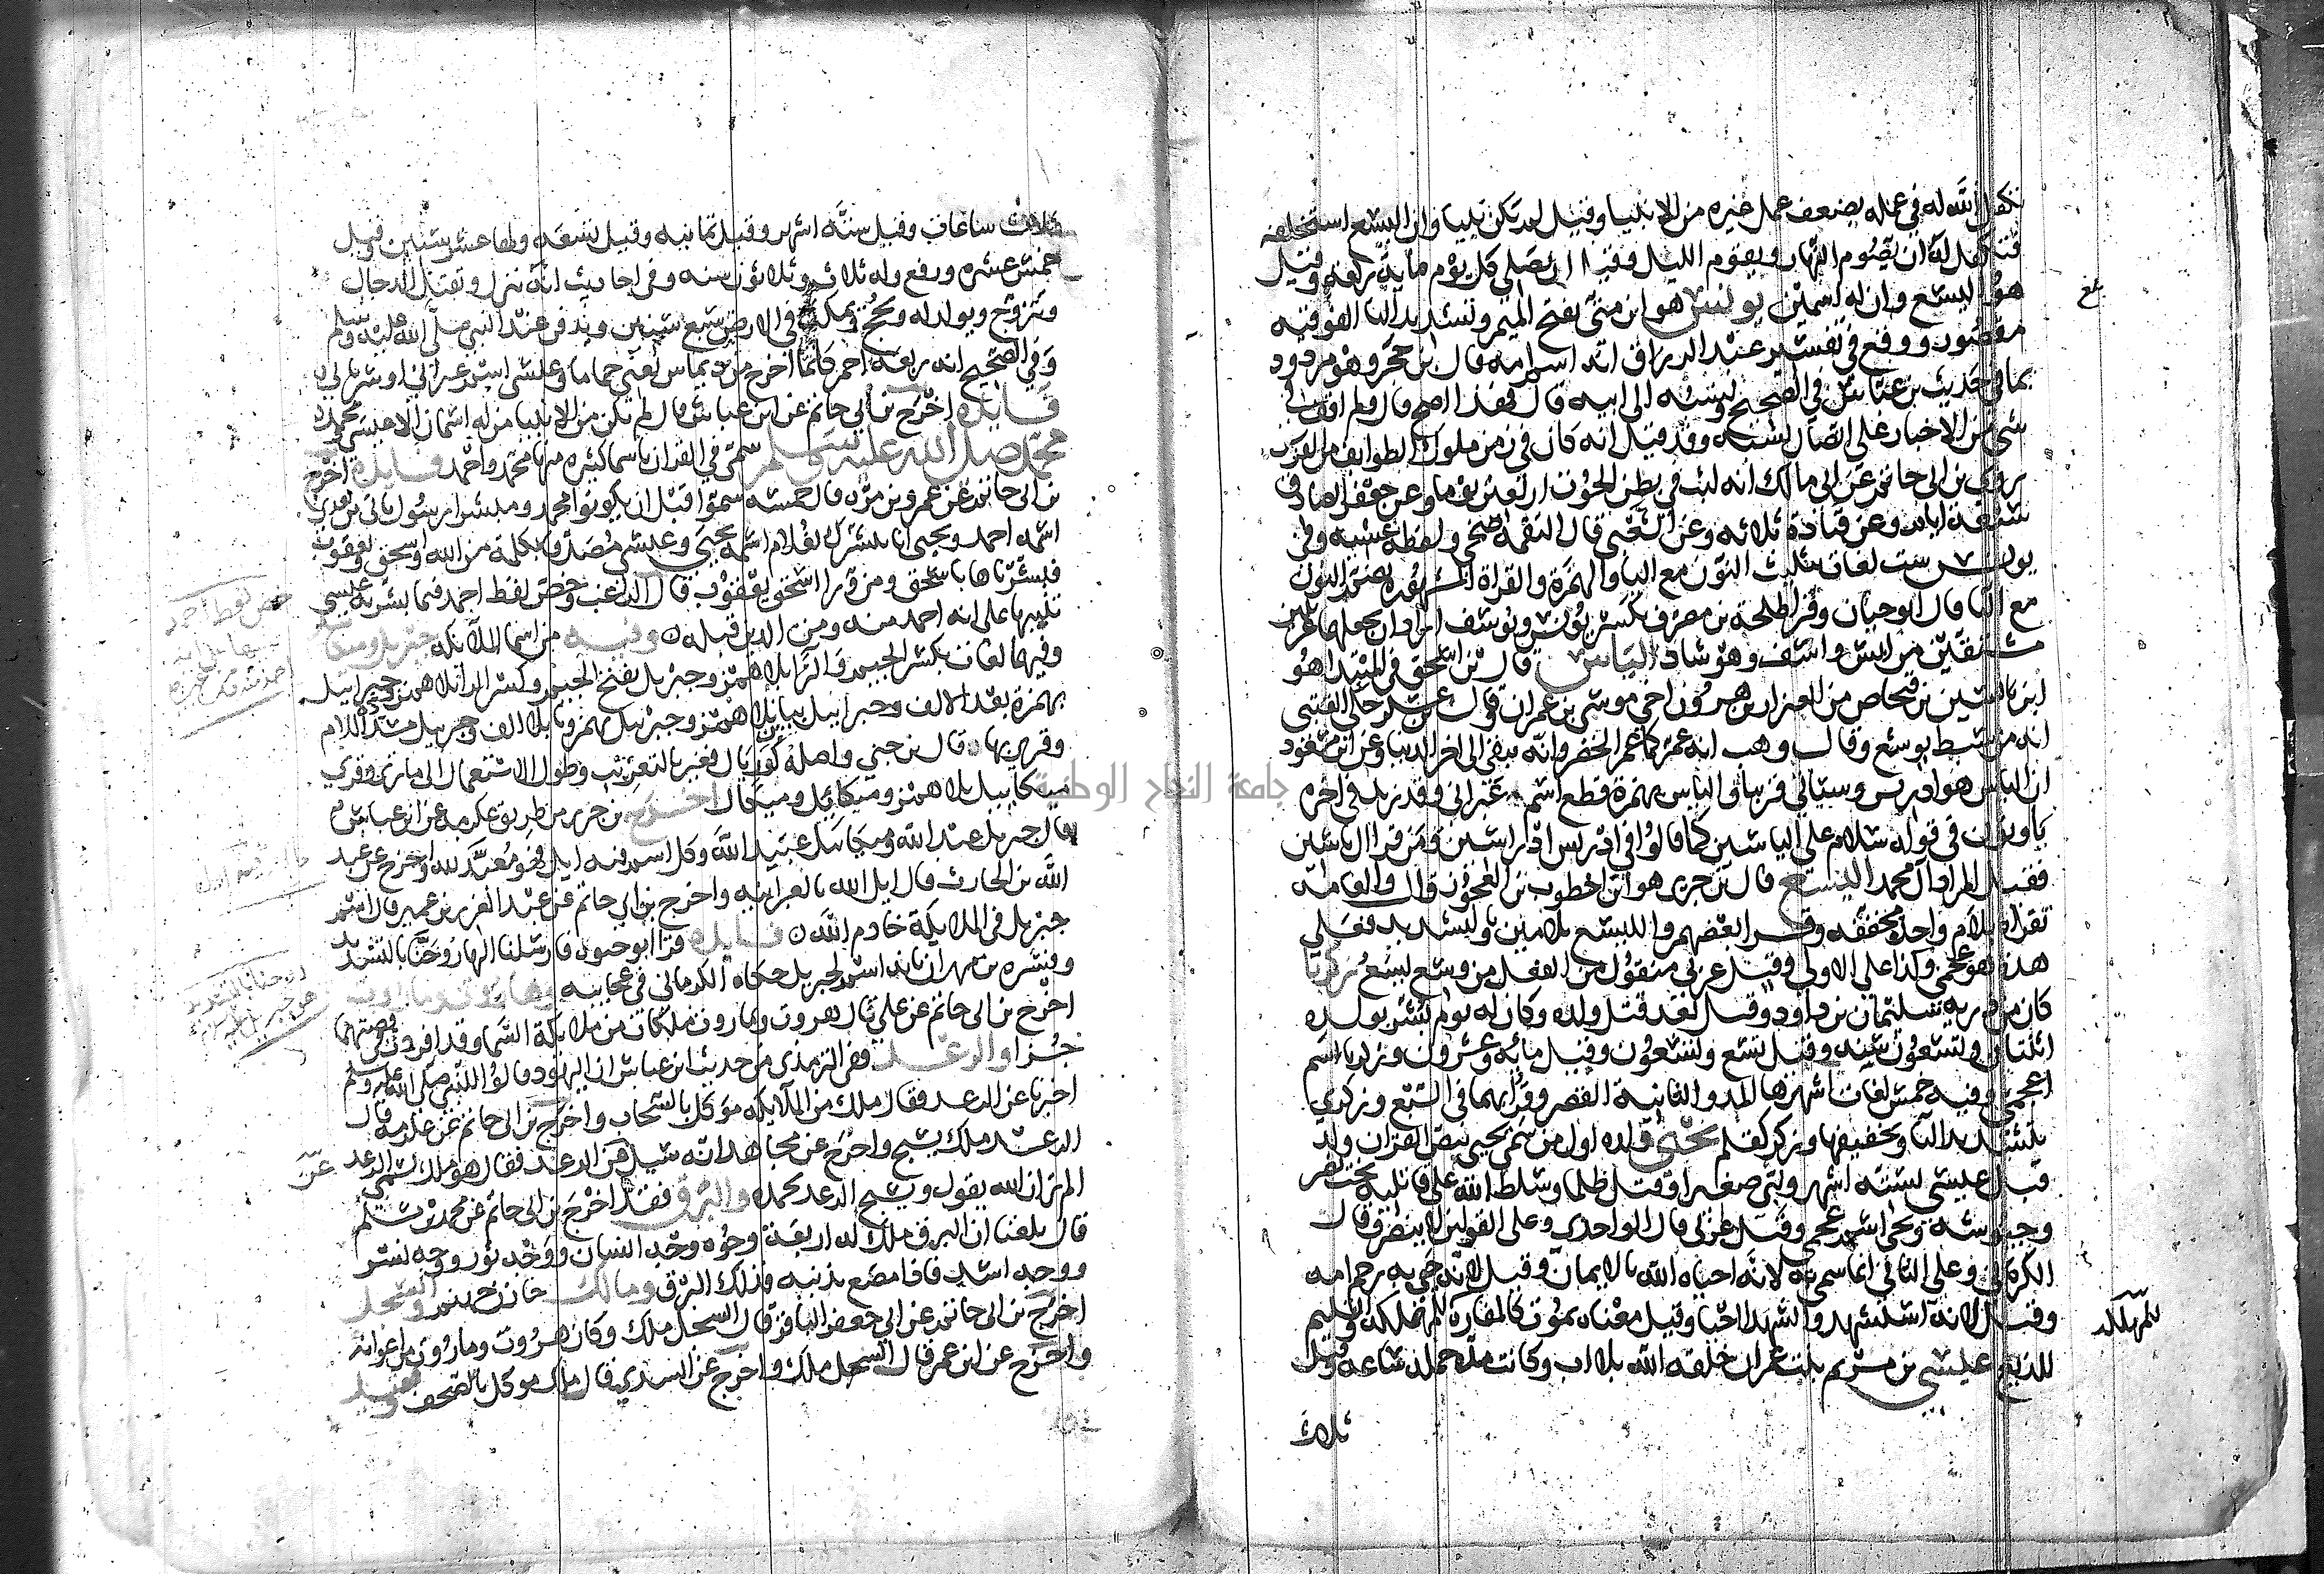 تكفل الله له في عمله بضعف عمل غيره من الانبيا وقيل لم يكن نبيا وان اليسع استخلفه
فتكفل له ان يصوم النهار ويقوم الليل وقيل ان يصلي كل يوم ماية ركعة وقيل
هو اليسع وان له اسمين يونس هو ابن متى بفتح الميم وتشديد التا الفوقيه
مقصور ووقع في تفسير عبد الرزاق انه اسم امه قال ابن حجر وهو مردود
بما في حديث بن عباس في الصحيح ونسبه الى ابيه قال فهذا اصح قال ولم اقف في
شي من الاخبار على اتصال نسبه وقد قيل انه كان في زمن ملوك الطوايف من الفرس
روى بن ابي حاتم عن ابي مالك انه لبث في بطن الحوت اربعين يوما وعن جعفر الصادق
سبعة ايام وعن قتادة ثلاثه وعن الشعبي قال التقمه ضحى ولفظه عشيه وفي
يونس ست لغات تثليث النون مع اليا والهمزة والقراة المشهورة بضم النون
مع اليا قال ابو حيان وقرا طلحة بن مصرف بكسر يونس ويوسف اراد ان يجعلهما عربيين
مشتقين من انس واسف وهو شاذ الياس قال بن اسحق في المبتدا هو
ابن ياسين بن فنحاص بن العيزار بن هرون اخي موسى بن عمران وقال بن عسكر حكى القتبي
انه من سبط يوشع وقال وهب انه عمر كما عمر الخضر وانه يبقى الى اخر الدنيا وعن ابن مسعود
ان الياس هو ادريس وسياتي قريبا والياس بهمزة قطع اسم عبراني وقد زيد في اخره
يا ونون في قوله سلام على الياسين كما قالوا في ادريس ادراسين ومن قرا ال ياسين
فقيل المراد آل محمد اليسع قال بن جرير هو ابن اخطوب بن العجوز قال والعامة
تقراه بلام واحدة مخففه وقرا بعضهم والليسع بلامين وبالتشديد فعلى
هذا هو عجمي وكذا على الاولى وقيل عربي منقول من الفعل من وسع يسع زكريا
كان من ذرية سليمان بن داود وقيل بعد قتل ولده وكان له يوم بشر بولده
اثنتان وتسعون سنه وقيل تسع وتسعون وقيل مايه وعشرون وزكريا اسم
اعجمي وفيه خمس لغات اشهرها المد والثانية القصر وقرا بهما في السبع وزكري
بتشديد اليا وتخفيفها وزكر كقلم يحيى ولده اول من سمي يحيى بنص القران ولد
قبل عيسى بستة اشهر ونبي صغيرا وقتل ظلما وسلط الله على قاتليه بخت نصر
وجيوشه ويحيى اسم عجمي وقيل عربي قال الواحدي وعلى القولين لا ينصرف قال
الكرماني وعلى الثاني انما سمي به لانه احياه الله بالايمان وقيل لانه حي به رحم امه
وقيل لانه استشهد والشهدا احيا وقيل معناه يموت كالمفازة للمهلكة والسليم
للمهلكه
للديغ عيسى بن مريم بنت عمران خلقه الله بلا اب وكانت مدة حمله ساعه وقيل
ثلاث
ثلاث ساعات وقيل ستة اشهر وقيل ثمانيه وقيل تسعه ولها عشر سنين وقيل
خمس عشره ورفع وله ثلاث وثلاثون سنه وفي احاديث انه ينزل ويقتل الدجال
ويتزوج ويولد له ويحج ويمكث في الارض سبع سنين ويدفن عند النبي صلى الله عليه وسلم
وفي الصحيح انه ربعة احمر كانما اخرج من ديماس يعني حماما وعيسى اسم عبراني او سرياني
فايده اخرج بن ابي حاتم عن ابن عباس قال لم يكن من الانبيا من له اسمان الا عيسى ومحمد
محمد صلى الله عليه وسلم سمي في القران باسما كثيره منها محمد واحمد فايدة اخرج
بن ابي حاتم عن عمرو بن مره قال خمسه سموا قبل ان يكونوا محمد ومبشرا برسول ياتي من بعدي
اسمه احمد ويحيى انا نبشرك بغلام اسمه يحيى وعيسى مصدقا بكلمة من الله واسحق ويعقوب
فبشرناها باسحق ومن ورا اسحق يعقوب قال الراغب وخص لفظ احمد فيما بشر به عيسى
تنبيها على انه احمد منه ومن الذين قبله وفيه من اسما الملايكه جبريل وميكايل
وفيهما لغات بكسر الجيم والرا بلا همز وجبريل بفتح الجيم وكسر الرا بلا همز وجبرائيل
بهمزة بعد الالف وجبراييل بيايين بلا همز وجبرئيل بهمز ويا بلا الف وجبرئل مشدد اللام
وقري بها قال بن جني واصله كوريال فغير بالتعريب وطول الاستعمال الى ما ترى وقري
ميكاييل بلا همز وميكائيل وميكال اخرج بن جرير من طريق عكرمه عن ابن عباس
قال جبريل عبد الله وميكائيل عبيد الله وكل اسم فيه ايل فهو معبد لله واخرج عن عبد
الله بن الحارث قال ايل الله بالعبرانيه واخرج بن ابي حاتم عن عبد العزيز بن عمير قال اسم
جبريل في الملايكة خادم الله فايده قرا ابو حيوه فارسلنا اليها روحنا بالتشديد
وفسره بن مهران بانه اسم لجبريل حكاه الكرماني في عجايبه وهاروت وماروت
اخرج بن ابي حاتم عن علي قال هروت وماروت ملكان من ملايكة السما وقد افردت قصتهما
جزا والرعد ففي الترمذي من حديث ابن عباس ان اليهود قالوا للنبي صلى الله عليه وسلم
اخبرنا عن الرعد فقال ملك من الملايكه موكل بالسحاب واخرج بن ابي حاتم عن عكرمه قال
الرعد ملك يسبح واخرج عن مجاهد انه سيل عن الرعد فقال هو ملك يسمى الرعد
الم تر ان الله يقول ويسبح الرعد بحمده والبرق فقد اخرج بن ابي حاتم عن محمد بن مسلم
قال بلغنا ان البرق ملك له اربعة وجوه وجه انسان ووجه ثور ووجه نسر
ووجه اسد فاذا مصع بذنبه فذلك البرق ومالك خازن جهنم والسجل
اخرج بن ابي حاتم عن ابي جعفر الباقر قال السجل ملك وكان هروت وماروت من اعوانه
واخرج عن ابن عمر قال السجل ملك واخرج عن السدي قال ملك موكل بالصحف وقعيد
جامعة النجاح الوطنية